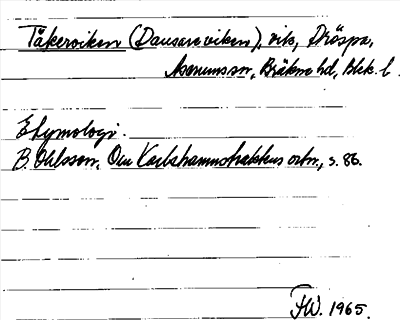 Täkerviken (Dansareviken), vik, Dröspe,
Asarums sn, Bräkne hd, Blek. l.
Etymologi.
B. Ohlsson, Om Karlshamnstraktens ortn., s. 86.
FW. 1965.